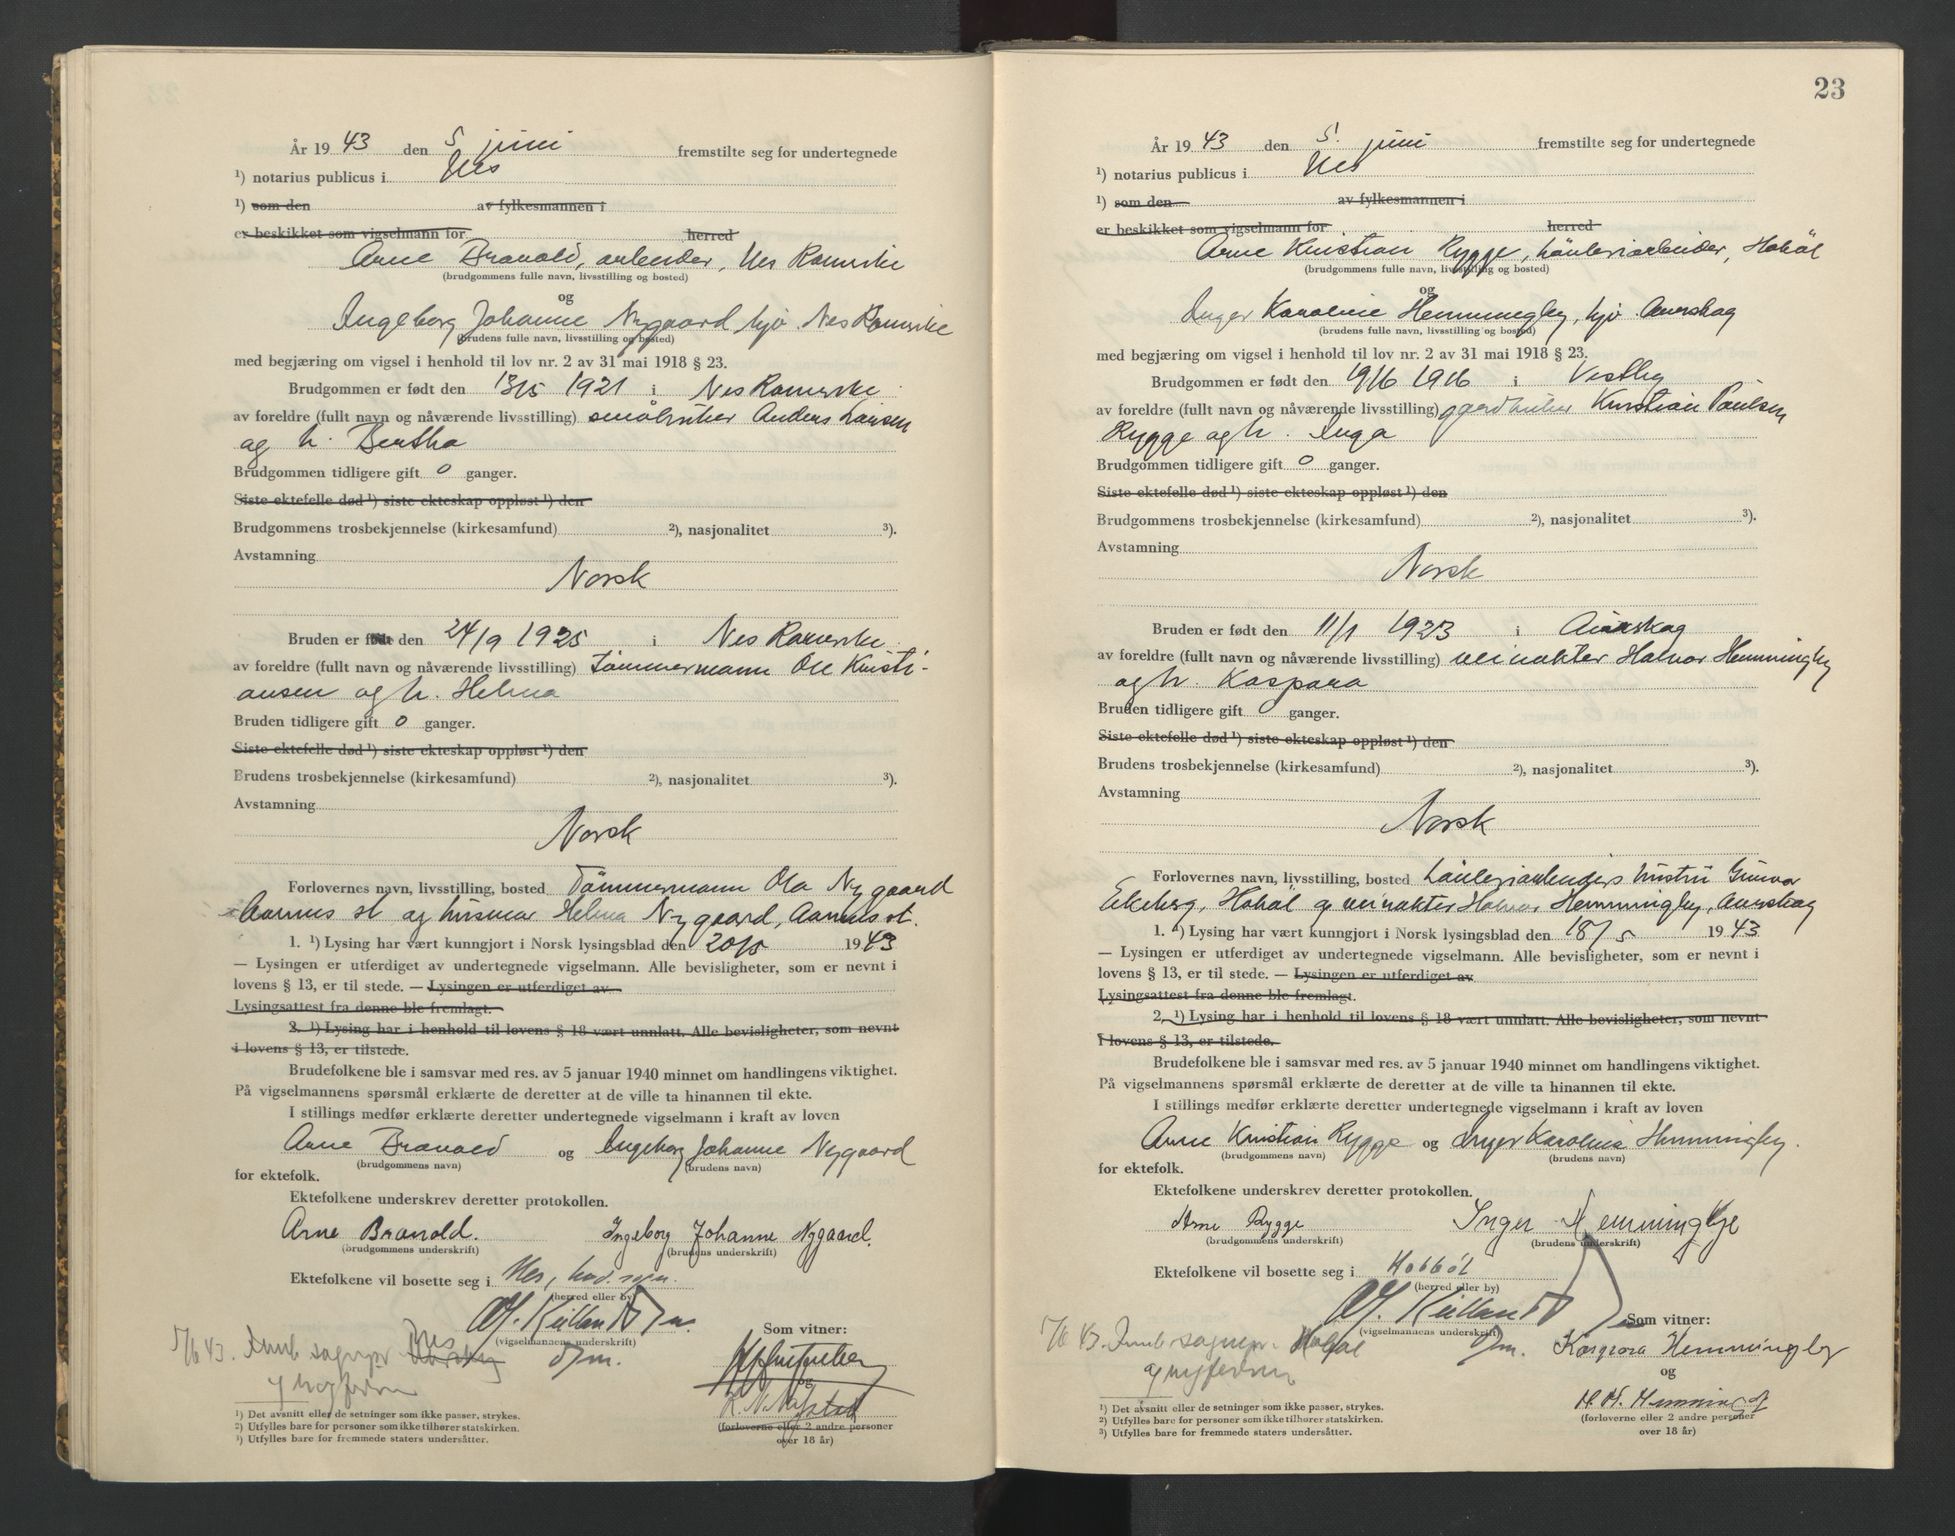 År 1943 den 5 juni fremstilte seg for undertegnede
¹) notarius publicus i Nes
¹) som den av fylkesmannen i
er beskikket som vigselmann for herred
Arne Branold, arbeider, Nes Romerike
(brudgommens fulle navn, livsstilling og bosted)
og
Ingeborg Johanne Nygaard hjv. Nes Romerike
(brudens fulle navn, livsstilling og bosted)
med begjæring om vigsel i henhold til lov nr. 2 av 31 mai 1918 § 23.
Brudgommen er født den 13/5 1921 i Nes Romerike
av foreldre (fullt navn og nåværende livsstilling) småbruker Anders Larsen
og h. Bertha
Brudgommen tidligere gift 0 ganger.
Siste ektefelle død ¹) siste ekteskap oppløst ¹) den
Brudgommens trosbekjennelse (kirkesamfund) ²), nasjonalitet ³).
Avstamning
Norsk
Bruden er født den 24/9 1925 i Nes Romerike
av foreldre (fullt navn og nåværende livsstilling) tømmermann Ole Kristi-
ansen og h. Helma
Bruden tidligere gift 0 ganger.
Siste ektefelle død ¹) siste ekteskap oppløst ¹) den
Brudens trosbekjennelse (kirkesamfund) ²), nasjonalitet ³).
Avstamning
Norsk
Forlovernes navn, livsstilling, bosted Tømmermann Ola Nygaard
Aarnes st og husmor Helma Nygaard, Aarnes st.
1. ¹) Lysing har vært kunngjort i Norsk lysingsblad den 20/5 1943
— Lysingen er utferdiget av undertegnede vigselmann. Alle bevisligheter, som er nevnt i
lovens § 13, er til stede. — Lysingen er utferdiget av
Lysingsattest fra denne ble fremlagt.
2. ¹) Lysing har i henhold til lovens § 18 vært unnlatt. Alle bevisligheter, som nevnt
i lovens § 13, er tilstede.
Brudefolkene ble i samsvar med res. av 5 januar 1940 minnet om handlingens viktighet.
På vigselmannens spørsmål erklærte de deretter at de ville ta hinannen til ekte.
I stillings medfør erklærte deretter undertegnede vigselmann i kraft av loven
Arne Branold og Ingeborg Johanne Nygaard
(brudgommens navn) (brudens navn)
for ektefolk.
Ektefolkene underskrev deretter protokollen.
Arne Branold. Ingeborg Johanne Nygaard.
(brudgommens underskrift) (brudens underskrift)
Ektefolkene vil bosette seg i Nes,
(herred eller by)
(vigselmannens underskrift) Som vitner:
7/6 43. Nes
og
(forloverne eller 2 andre personer
over 18 år)
¹) Det avsnitt eller de setninger som ikke passer, strykes.
²) Utfylles bare for personer som ikke tilhører statskirken.
³) Utfylles bare for fremmede staters undersåtter.
23
År 1943 den 5. juni fremstilte seg for undertegnede
¹) notarius publicus i Nes
¹) som den av fylkesmannen i
er beskikket som vigselmann for herred
Arne Kristian Rygge, Hobøl
(brudgommens fulle navn, livsstilling og bosted)
og
Inger Karoline Hemmingby, hjv. Aurskog
(brudens fulle navn, livsstilling og bosted)
med begjæring om vigsel i henhold til lov nr. 2 av 31 mai 1918 § 23.
Brudgommen er født den 19/6 1916 i Vestby
av foreldre (fullt navn og nåværende livsstilling) gaardbruker Kristian Paulsen
Rygge og h. Inga
Brudgommen tidligere gift 0 ganger.
Siste ektefelle død ¹) siste ekteskap oppløst ¹) den
Brudgommens trosbekjennelse (kirkesamfund) ²), nasjonalitet ³).
Avstamning
Norsk
Bruden er født den 11/1 1923 i Aurskog
av foreldre (fullt navn og nåværende livsstilling) veivokter Halvor Hemmingby
og h. Kaspara
Bruden tidligere gift 0 ganger.
Siste ektefelle død ¹) siste ekteskap oppløst ¹) den
Brudens trosbekjennelse (kirkesamfund) ²), nasjonalitet ³).
Avstamning
Norsk
Forlovernes navn, livsstilling, bosted hustru Gunvor
Ekeberg, Hobøl og veivokter Halvor Hemmingby, Aurskog
1. ¹) Lysing har vært kunngjort i Norsk lysingsblad den 18/5 1943
— Lysingen er utferdiget av undertegnede vigselmann. Alle bevisligheter, som er nevnt i
lovens § 13, er til stede. — Lysingen er utferdiget av
Lysingsattest fra denne ble fremlagt.
2. ¹) Lysing har i henhold til lovens § 18 vært unnlatt. Alle bevisligheter, som nevnt
i lovens § 13, er tilstede.
Brudefolkene ble i samsvar med res. av 5 januar 1940 minnet om handlingens viktighet.
På vigselmannens spørsmål erklærte de deretter at de ville ta hinannen til ekte.
I stillings medfør erklærte deretter undertegnede vigselmann i kraft av loven
Arne Kristian Rygge og Inger Karoline Hemmingby.
(brudgommens navn) (brudens navn)
for ektefolk.
Ektefolkene underskrev deretter protokollen.
Arne Rygge Inger Hemmingbye
(brudgommens underskrift) (brudens underskrift)
Ektefolkene vil bosette seg i Hobbøl
(herred eller by)
(vigselmannens underskrift) Som vitner:
7/6 43. Hobøl Kaspara Hemmingby
og
(forloverne eller 2 andre personer
over 18 år)
¹) Det avsnitt eller de setninger som ikke passer, strykes.
²) Utfylles bare for personer som ikke tilhører statskirken.
³) Utfylles bare for fremmede staters undersåtter.